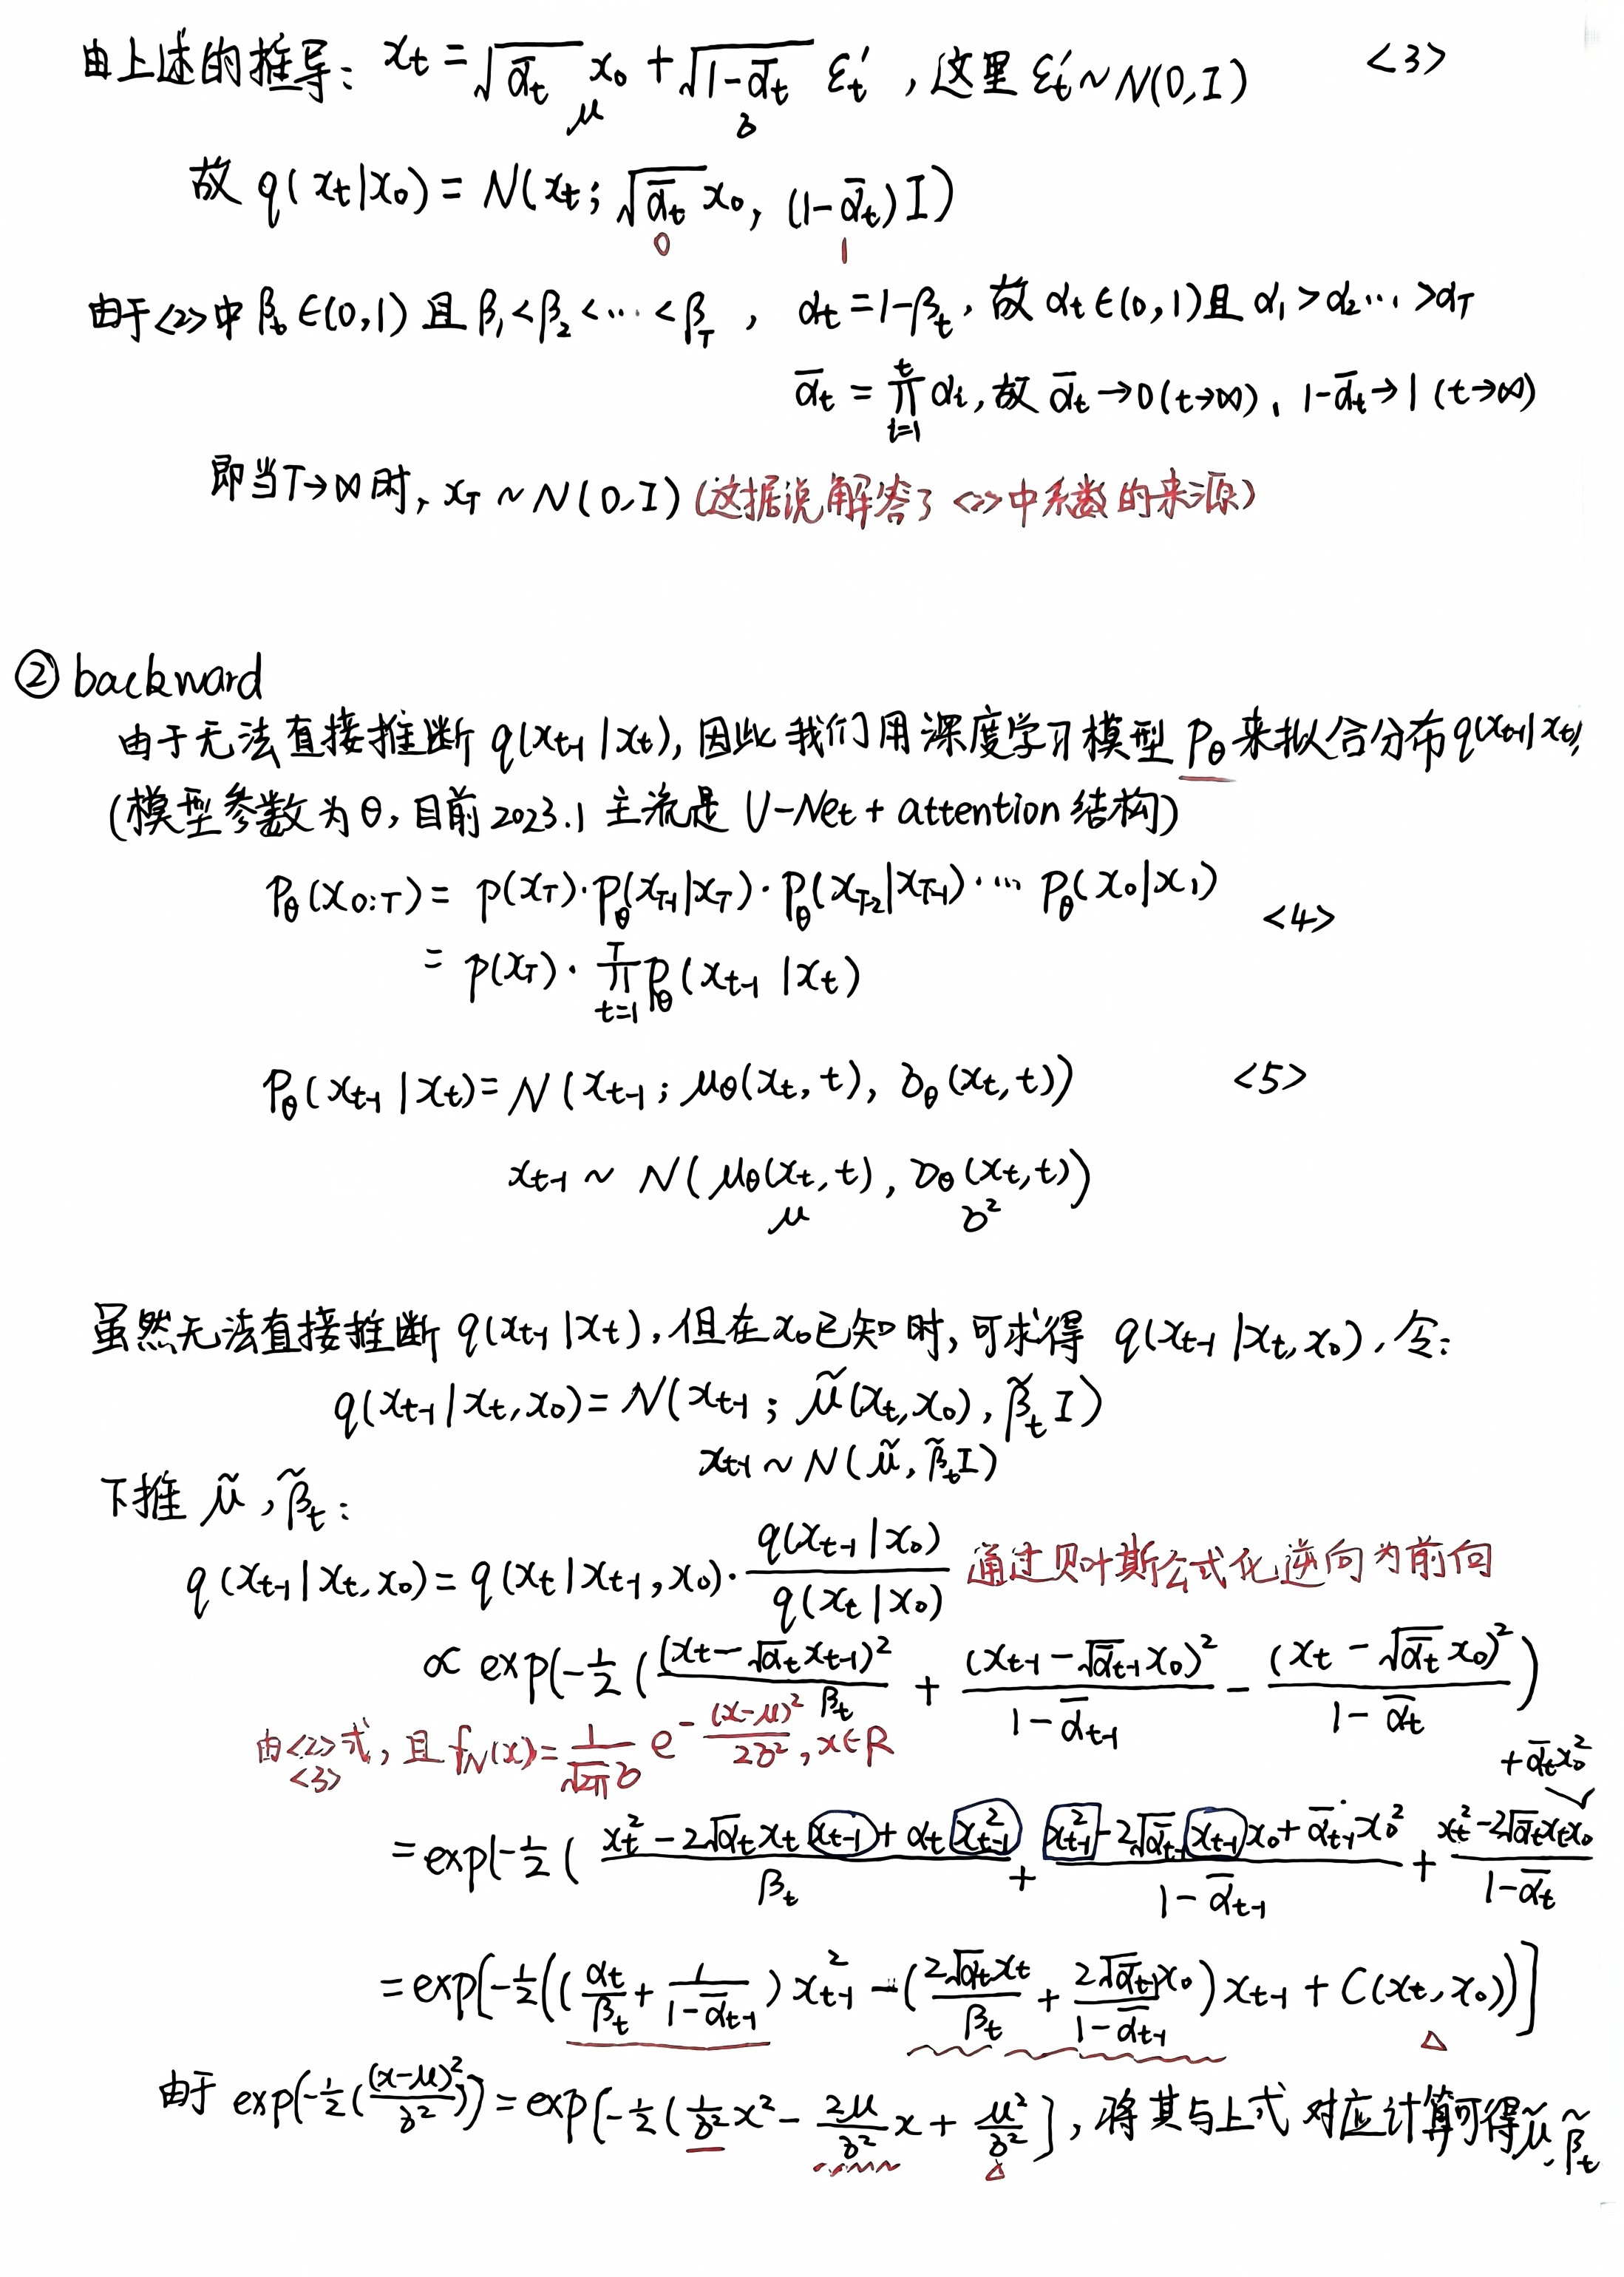 由上述的推导: xₜ = √ᾱₜ x₀ + √(1-ᾱₜ) εₜ′ ,这里 εₜ′ ~ N(0,I) <3>
μ σ
故 q(xₜ|x₀) = N(xₜ; √ᾱₜ x₀, (1-ᾱₜ)I)
0 1
由于<2>中 βₜ∈(0,1) 且 β₁<β₂<…<β_T , αₜ=1-βₜ, 故 αₜ∈(0,1)且 α₁>α₂…>α_T
ᾱₜ = ∏_{t=1}^{t} αᵢ, 故 ᾱₜ→0(t→∞), 1-ᾱₜ→1 (t→∞)
即当T→∞时, x_T ~ N(0,I) (这据说解答了<2>中系数的来源)
② backward
由于无法直接推断 q(x_{t-1}|xₜ), 因此我们用深度学习模型 P_θ 来拟合分布q(x_{t-1}|xₜ),
(模型参数为θ, 目前2023.1 主流是 U-Net + attention 结构)
P_θ(x_{0:T}) = p(x_T)·P_θ(x_{T-1}|x_T)·P_θ(x_{T-2}|x_{T-1})·… P_θ(x₀|x₁) <4>
= p(x_T)·∏_{t=1}^{T} P_θ(x_{t-1}|xₜ)
P_θ(x_{t-1}|xₜ) = N(x_{t-1}; μ_θ(xₜ,t), σ_θ(xₜ,t)) <5>
x_{t-1} ~ N(μ_θ(xₜ,t), σ_θ(xₜ,t))
μ σ²
虽然无法直接推断 q(x_{t-1}|xₜ), 但在x₀已知时, 可求得 q(x_{t-1}|xₜ,x₀), 令:
q(x_{t-1}|xₜ,x₀) = N(x_{t-1}; μ̃(xₜ,x₀), β̃ₜI)
x_{t-1} ~ N(μ̃, β̃ₜI)
下推 μ̃, β̃ₜ:
q(x_{t-1}|xₜ,x₀) = q(xₜ|x_{t-1},x₀)· q(x_{t-1}|x₀)/q(xₜ|x₀) 通过贝叶斯公式化逆向为前向
∝ exp(-1/2 ((xₜ-√αₜ x_{t-1})²/βₜ + (x_{t-1}-√ᾱ_{t-1} x₀)²/(1-ᾱ_{t-1}) - (xₜ-√ᾱₜ x₀)²/(1-ᾱₜ))
由<2>式, 且 f_N(x) = 1/(√2π σ) e^{-(x-μ)²/2σ²}, x∈R
<3>
+ᾱₜx₀²
= exp(-1/2 ( (xₜ²-2√αₜ xₜ x_{t-1}+αₜ x²_{t-1})/βₜ + (x²_{t-1}-2√ᾱ_{t-1} x_{t-1}x₀+ᾱ_{t-1}x₀²)/(1-ᾱ_{t-1}) + (xₜ²-2√ᾱₜxₜx₀)/(1-ᾱₜ)
= exp[-1/2((αₜ/βₜ + 1/(1-ᾱ_{t-1})) x²_{t-1} - (2√αₜ xₜ/βₜ + 2√ᾱ_{t-1} x₀/(1-ᾱ_{t-1})) x_{t-1} + C(xₜ,x₀))]
△
由于 exp(-1/2((x-μ)²/σ²)) = exp[-1/2(1/σ² x² - 2μ/σ² x + μ²/σ²], 将其与上式对应计算可得μ̃, β̃ₜ
△